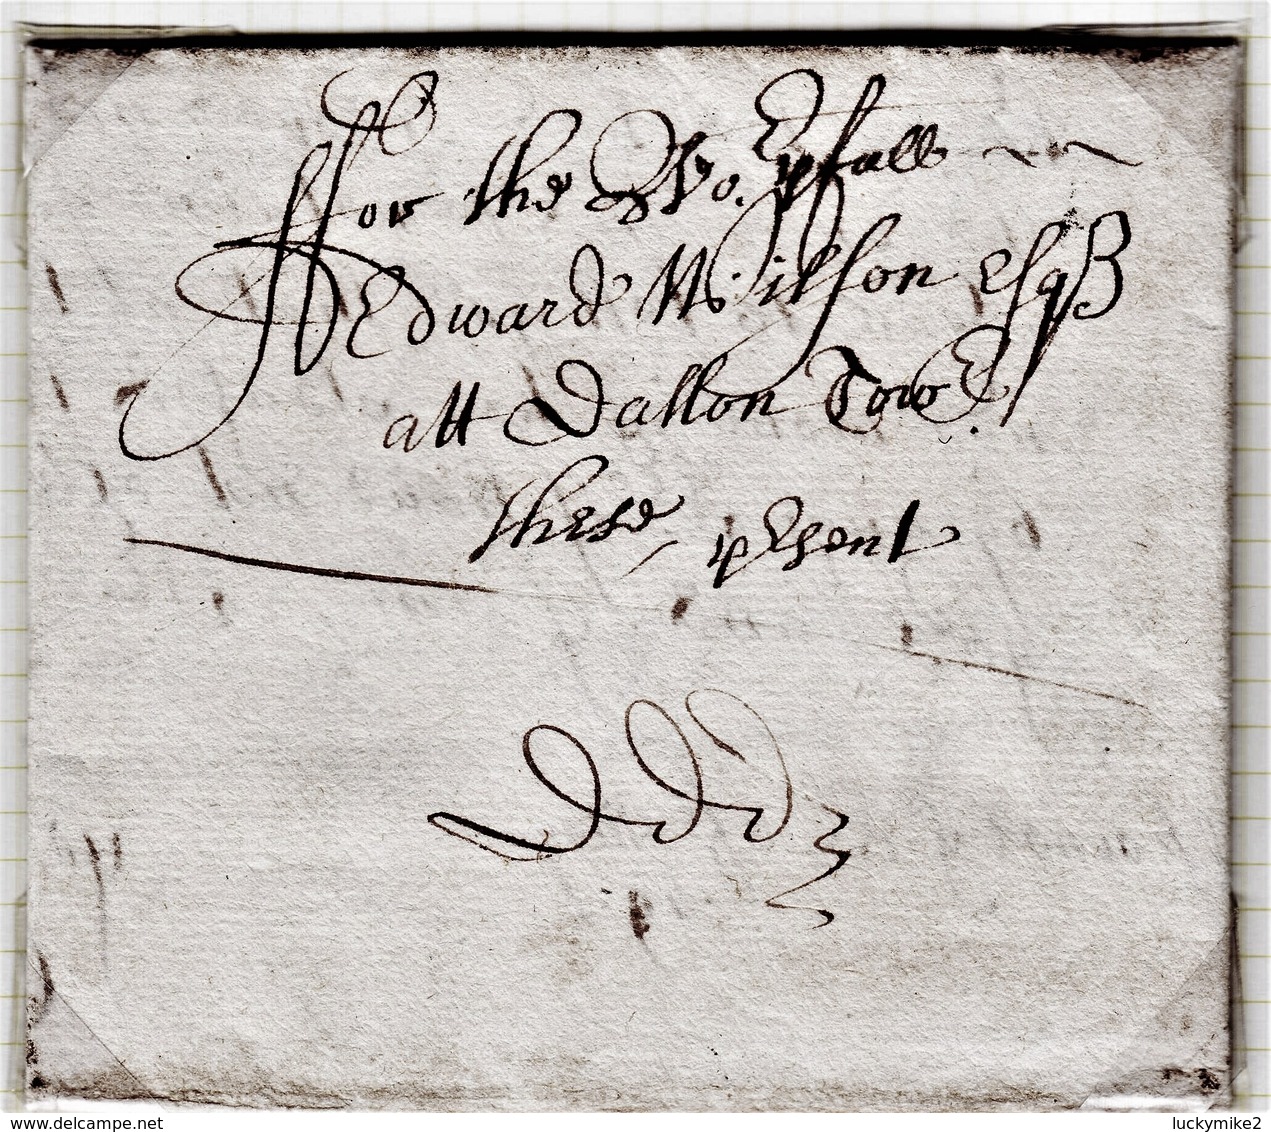 ffor the Wo:pfull
Edward Wilson Esqr
att Dallon Tower
these present
www.delcampe.net
luckymike2